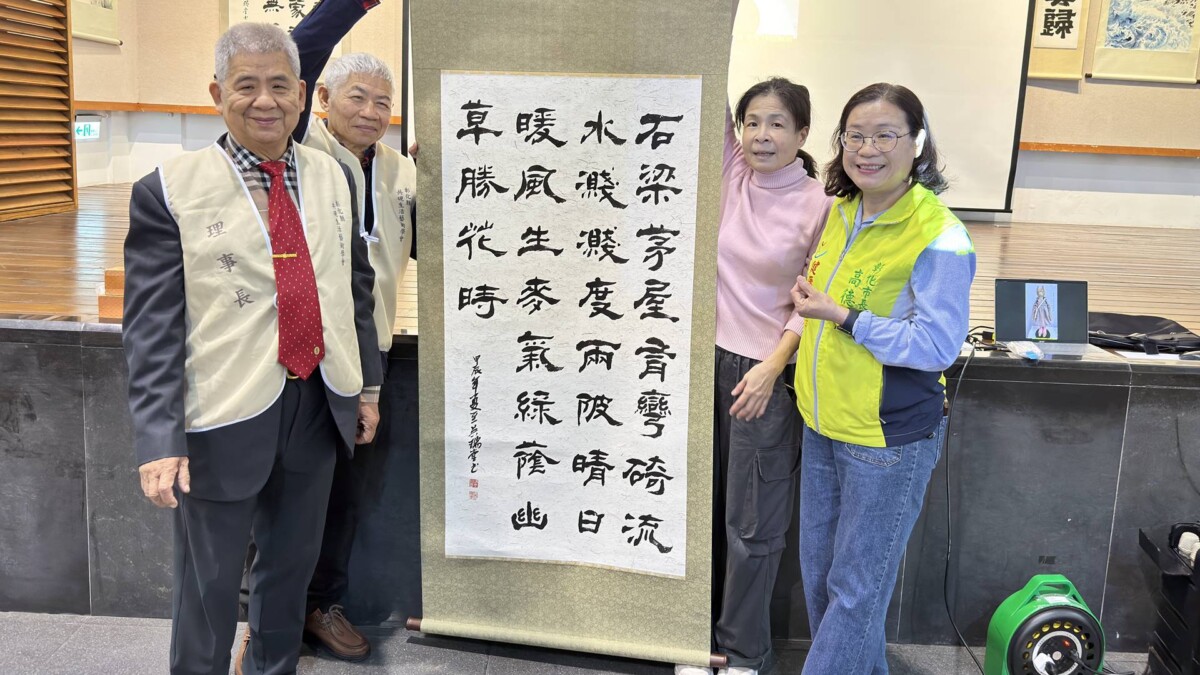 石梁茅屋有彎碕流
水濺濺度兩陂晴日
暖風生麥氣綠蔭幽
草勝花時
甲辰年夏
理事長
彰化縣
彰化市長
高德